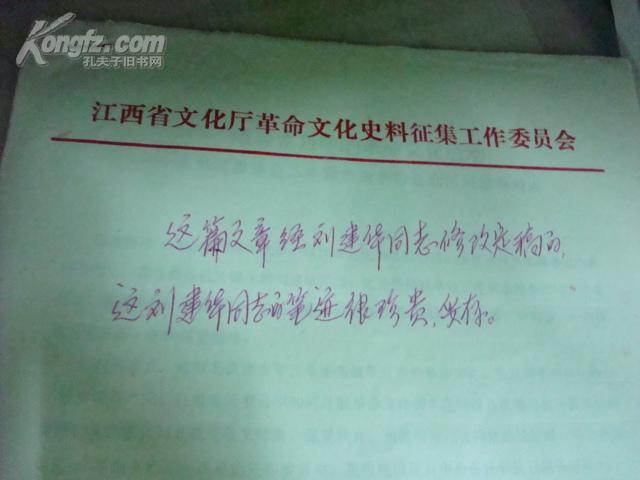 Kongfz.com
孔夫子旧书网
江西省文化厅革命文化史料征集工作委员会
这篇文章经刘建华同志修改定稿的,
这刘建华同志的笔迹很珍贵,